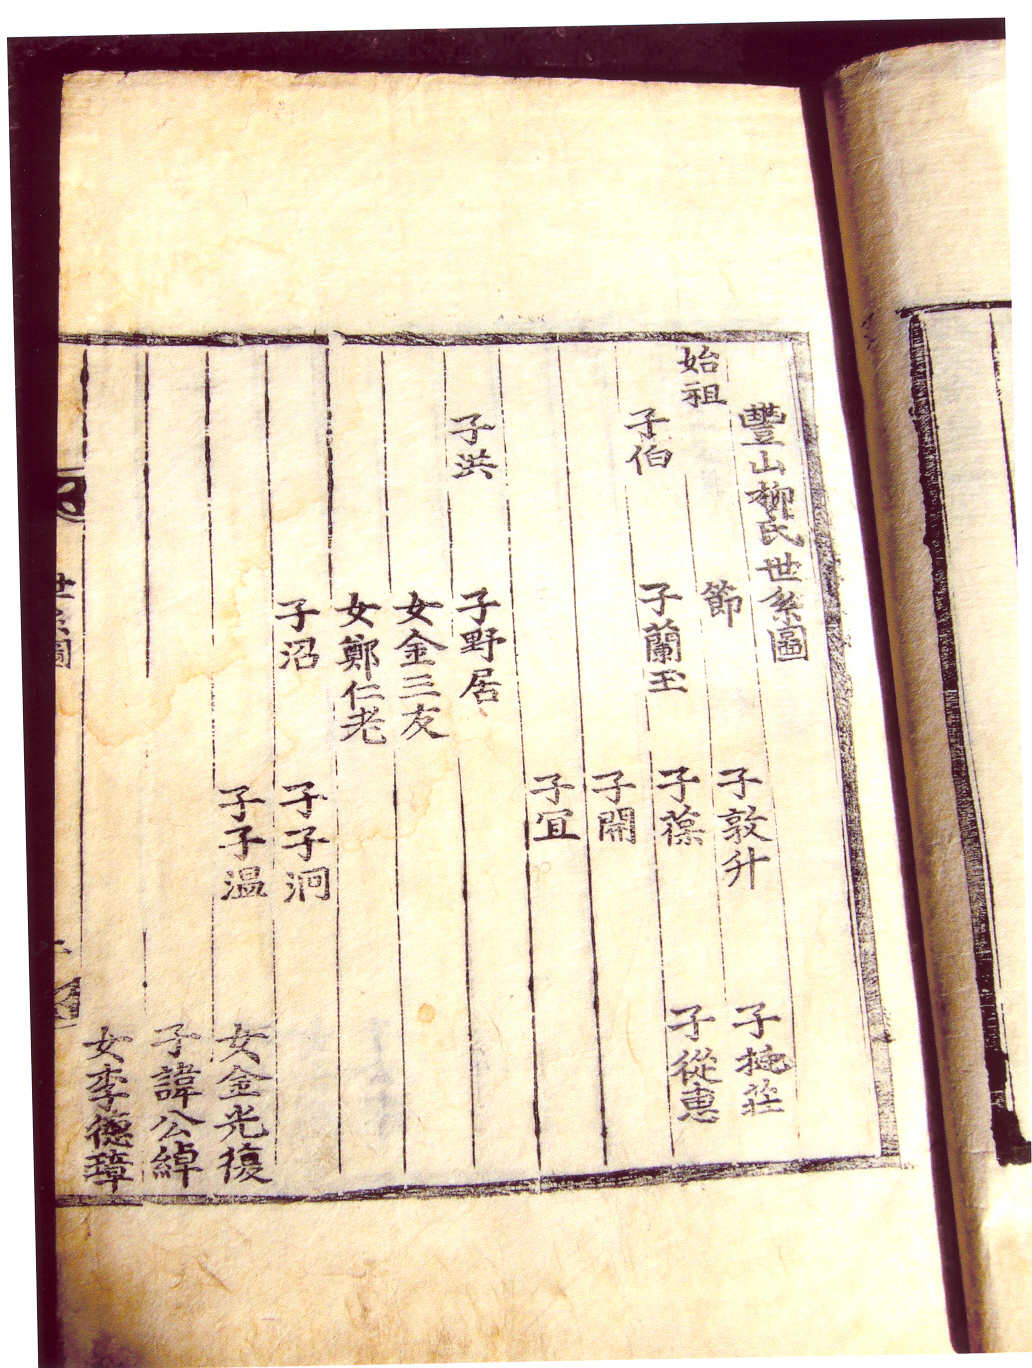 豐山柳氏世系圖
始祖
節
子敦升
子挻莊
子伯
子蘭玉
子葆
子從惠
子開
子宜
子洪
子野居
女金三友
女鄭仁老
子沼
子子泂
子子温
女金光復
子諱公綽
女李德璋
世系圖